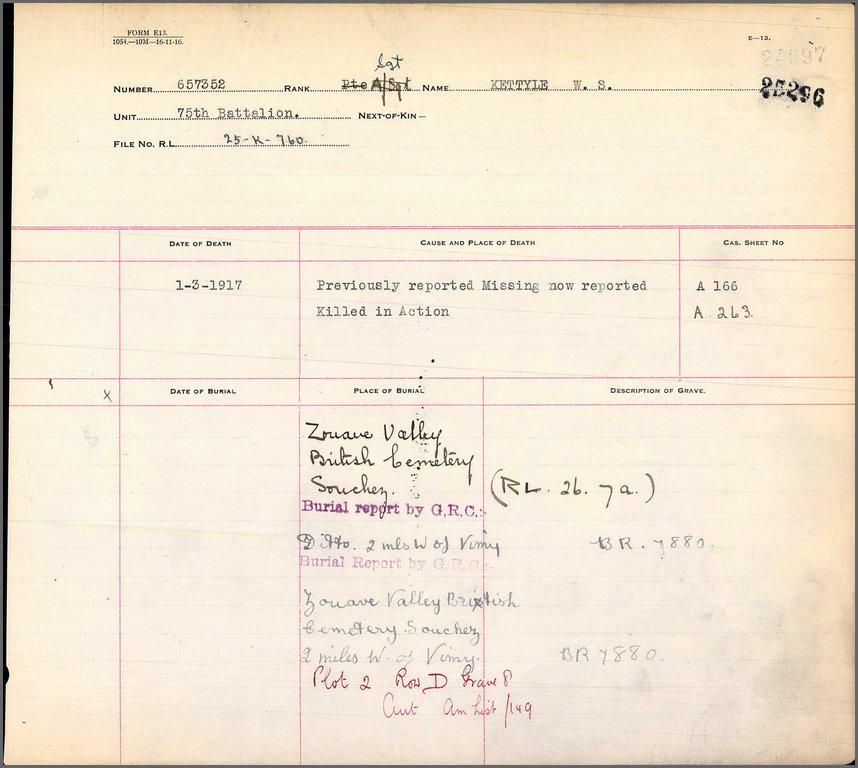 FORM E13.
1054.—10M—16-11-16.
E—13.
25296
Sgt
NUMBER 657352 RANK Pte A/Sgt NAME KETTYLE W. S.
UNIT 75th Battalion. NEXT-OF-KIN—
FILE NO. R.L. 25-K-760.
DATE OF DEATH CAUSE AND PLACE OF DEATH CAS. SHEET NO
1-3-1917 Previously reported Missing now reported A 166
Killed in Action A. 263.
X DATE OF BURIAL PLACE OF BURIAL DESCRIPTION OF GRAVE.
Zouave Valley
British Cemetery
Souchez. (RL. 26. 7a.)
Burial report by G.R.C.:-
Ditto. 2 mls W of Vimy BR. 7880.
Burial Report by G.R.C.:-
Zouave Valley British
Cemetery Souchez
2 miles W. of Vimy. BR 7880.
Plot 2 Row D Grave 8
Aut Am List /149